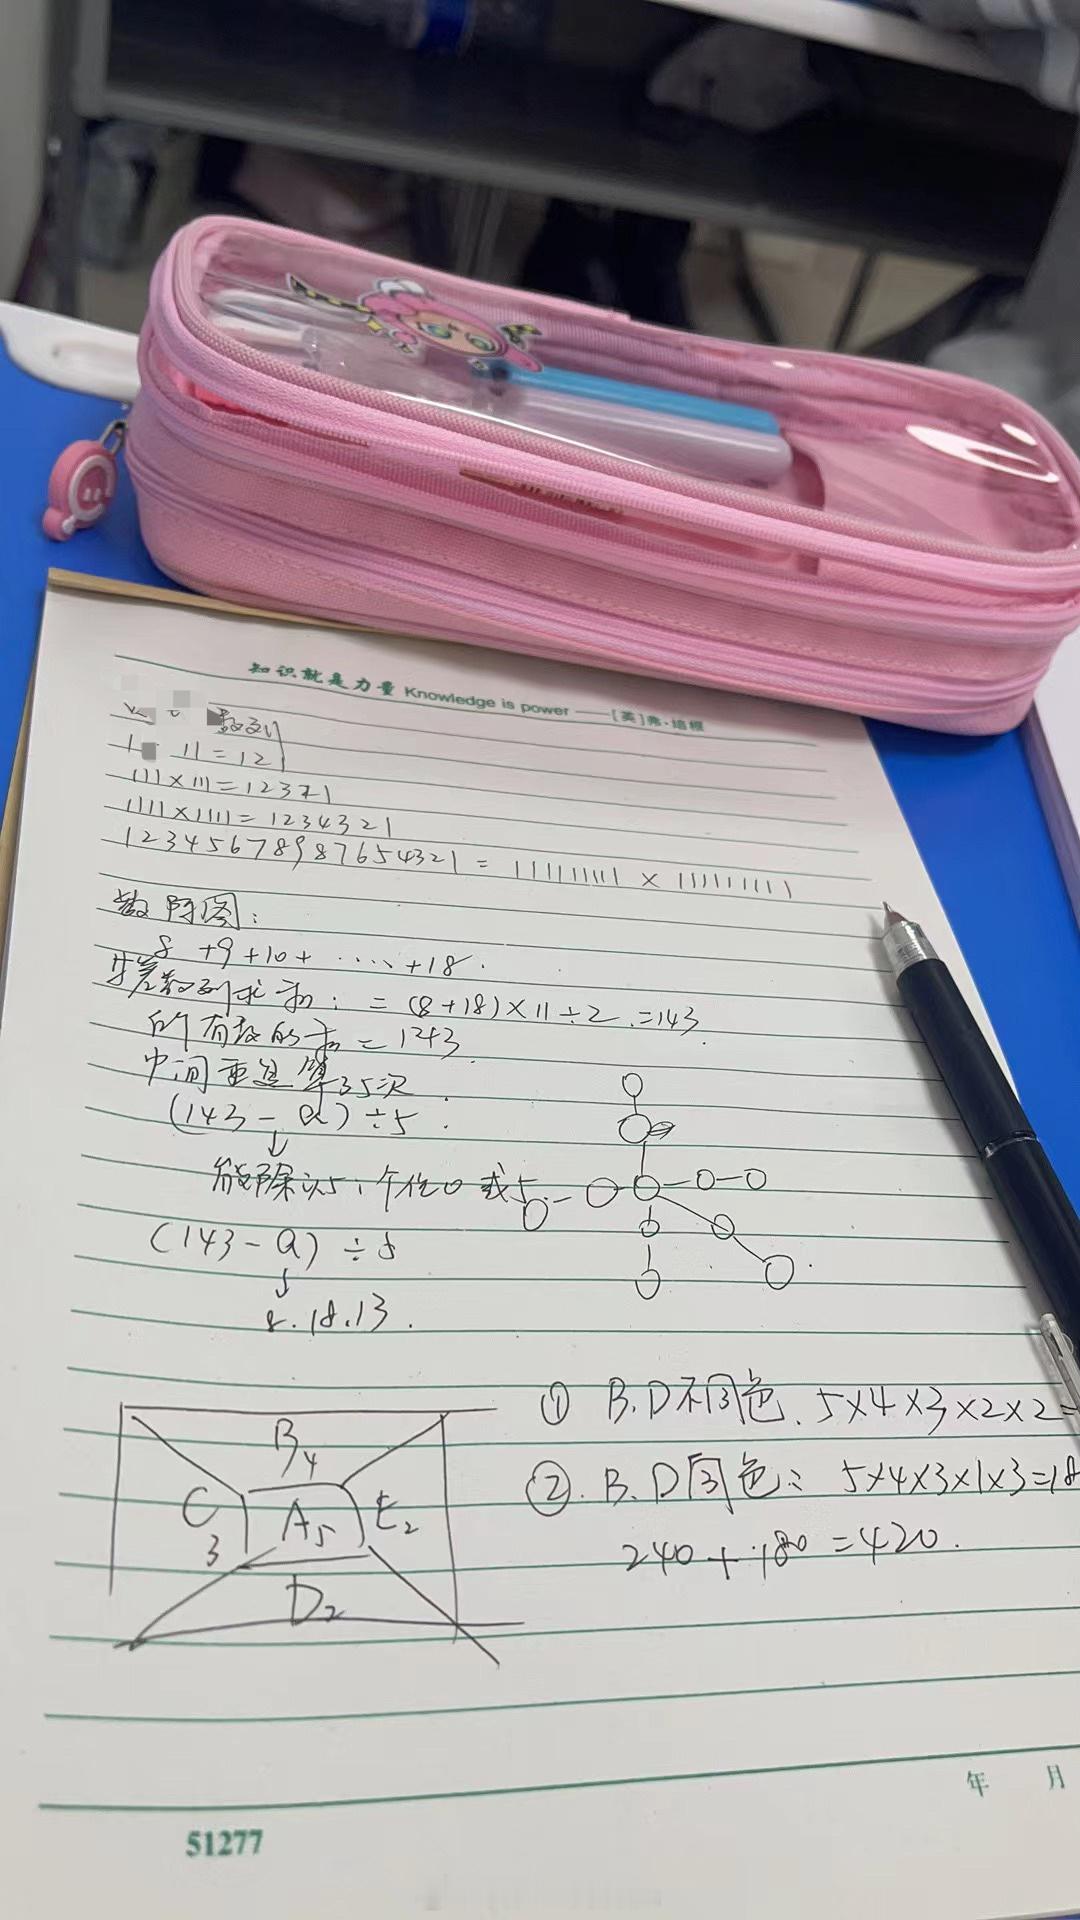 知识就是力量 Knowledge is power ——[英]弗·培根
数列
11=121
111×111=12321
1111×1111=1234321
12345678987654321=111111111×111111111
数阵图:
8+9+10+·····+18.
等差数列求和:=(8+18)×11÷2.=143.
所有数的和=143.
中间重复算5次
(143-a)÷5.
↓
能除以5,个位0或5.
(143-a)÷5
↓
8.18.13.
B4
C3 A5 E2
D2
① B.D不同色.5×4×3×2×2=
②.B.D同色:5×4×3×1×3=18
240+180=420.
年 月
51277